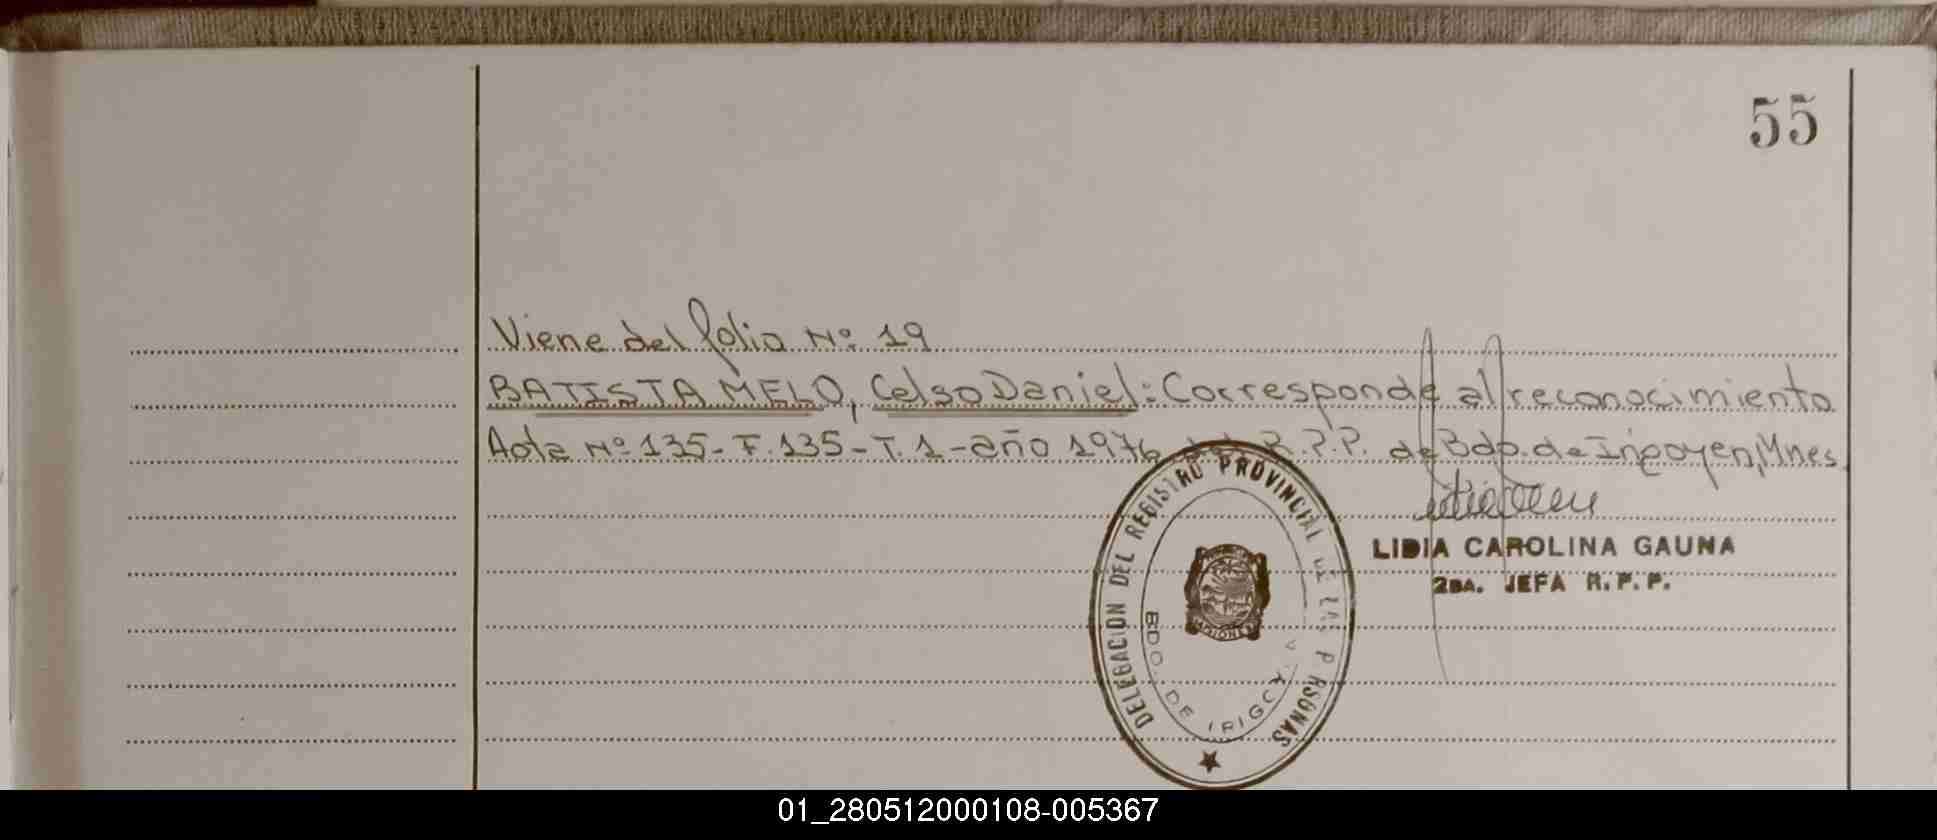 55
Viene del folio Nº 19
BATISTA MELO, Celso Daniel: Corresponde al reconocimiento
Acta Nº 135- F. 135 - T. 1 - año 1976 del R.P.P. de Bdo. de Irigoyen, Mnes.
LIDIA CAROLINA GAUNA
2DA. JEFA R.P.P.
DELEGACION DEL REGISTRO PROVINCIAL DE LAS PERSONAS
BDO. DE IRIGOYEN
MISIONES
01_280512000108-005367